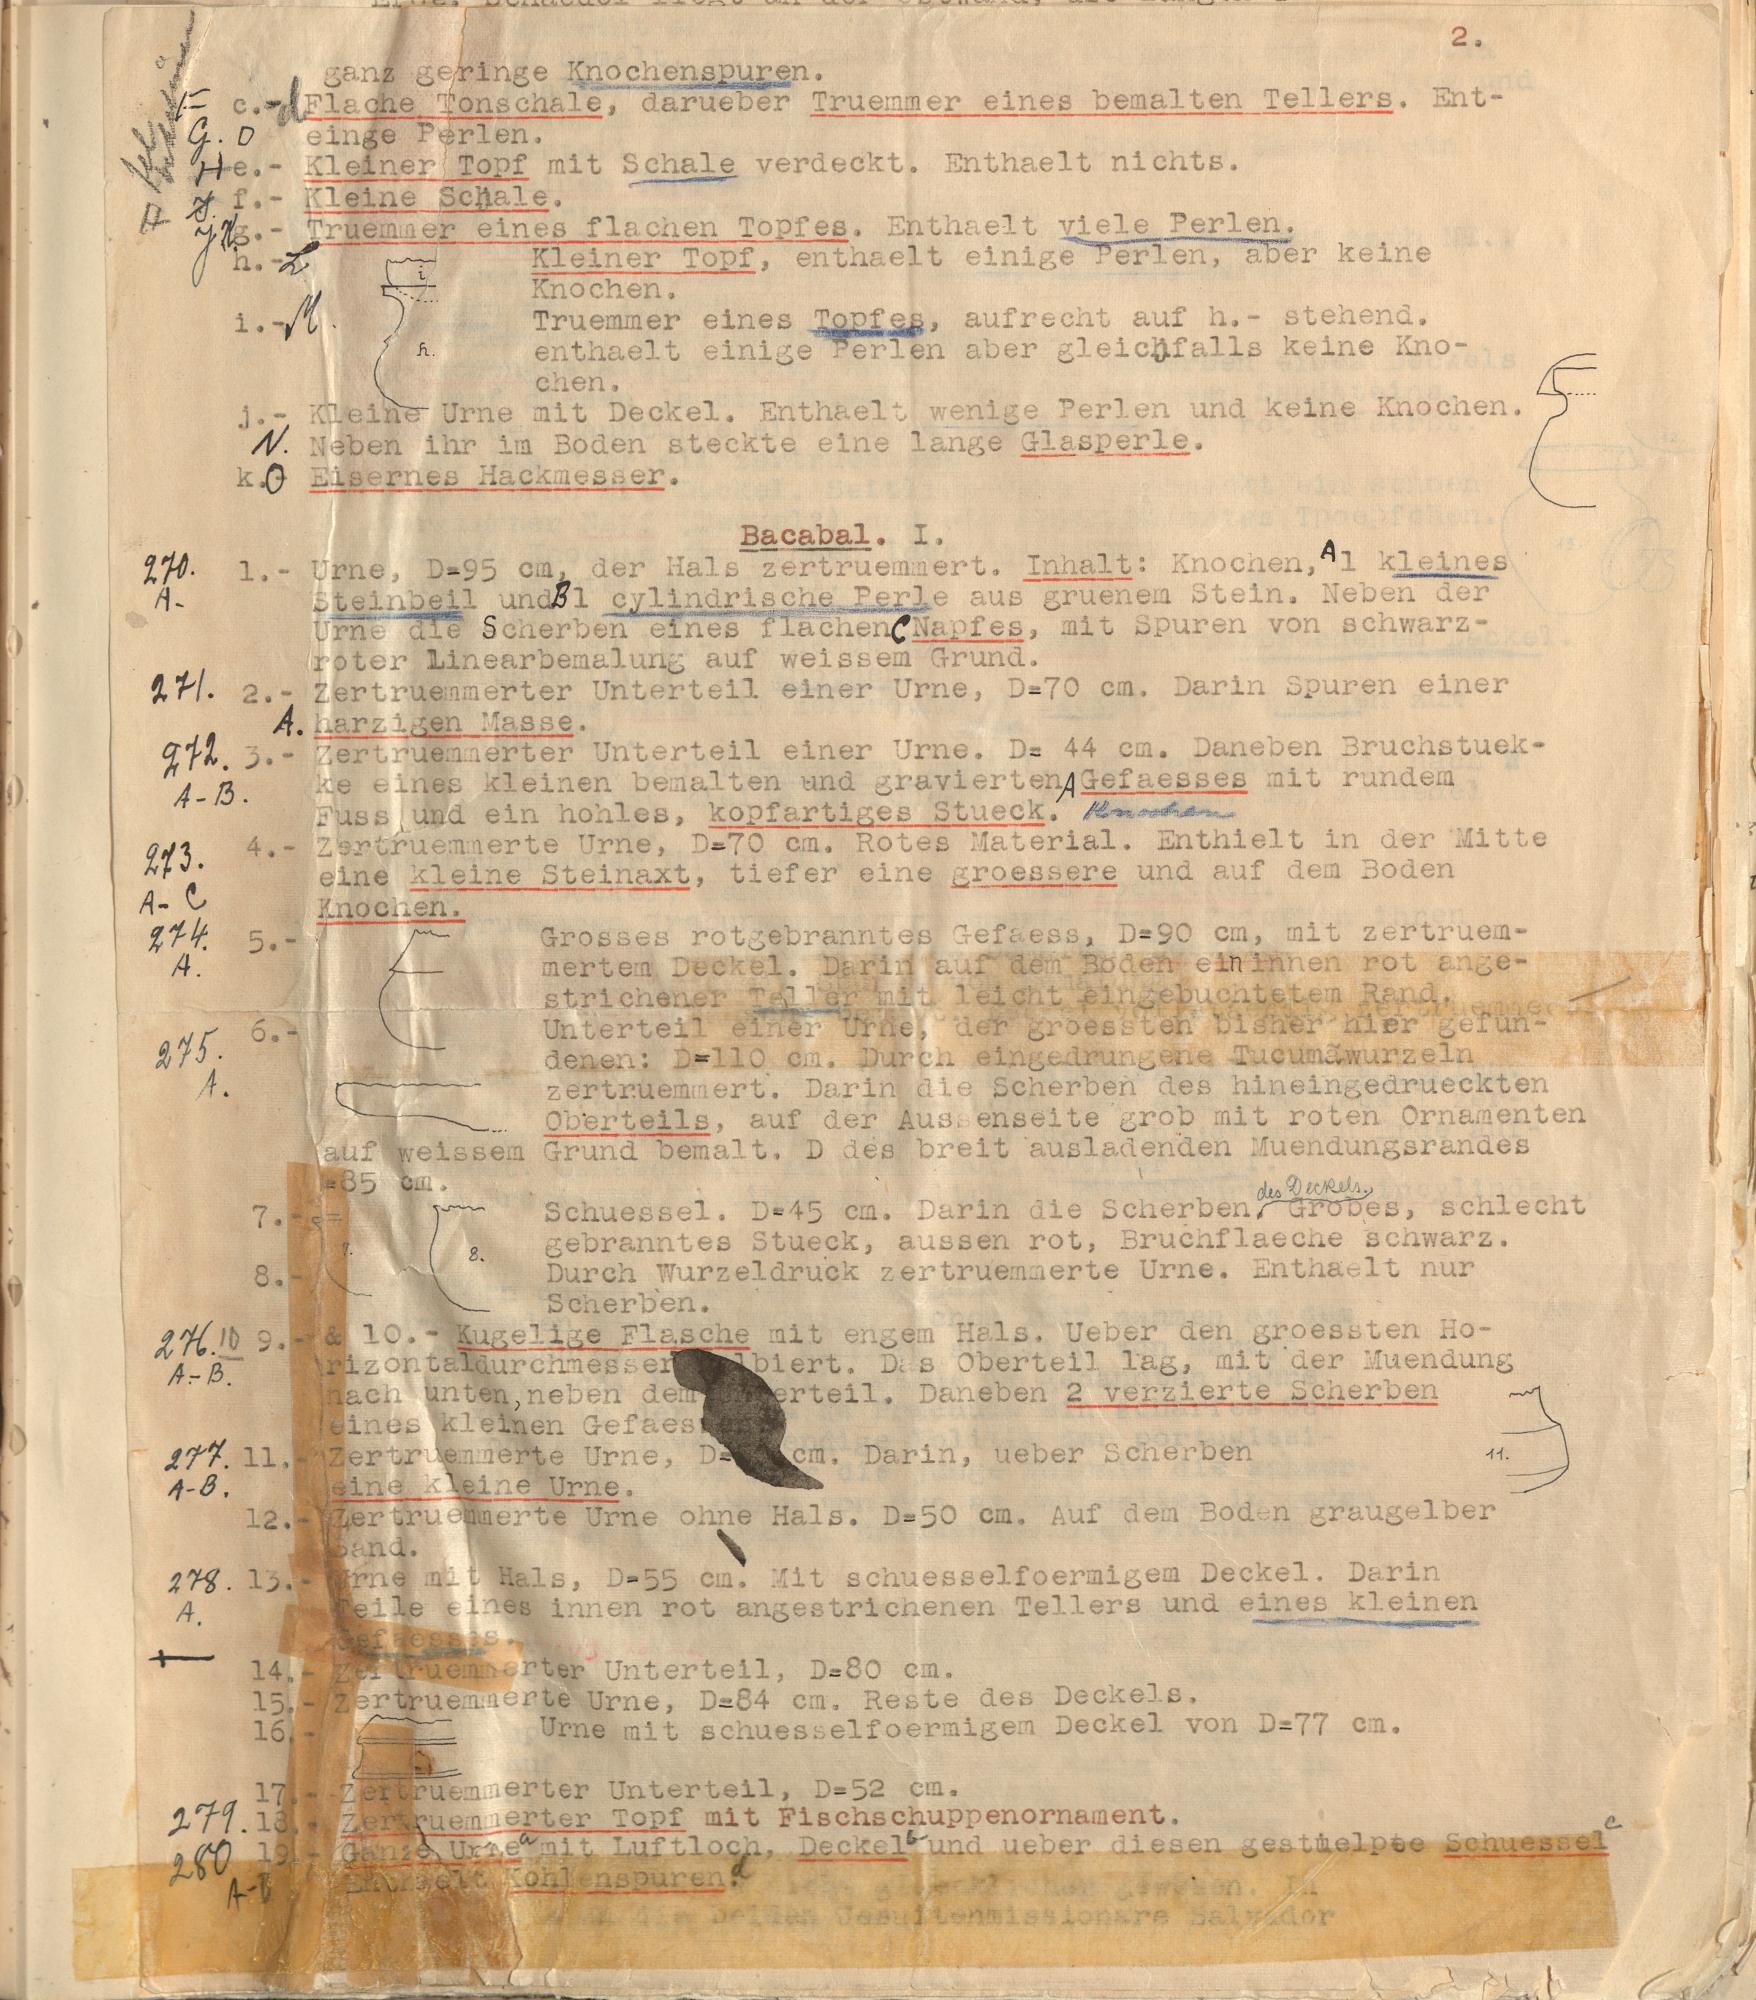 2.
ganz geringe Knochenspuren.
F c.-d Flache Tonschale, darueber Truemmer eines bemalten Tellers. Ent-
G. D einge Perlen.
H e.- Kleiner Topf mit Schale verdeckt. Enthaelt nichts.
f.- Kleine Schale.
g.- Truemmer eines flachen Topfes. Enthaelt viele Perlen.
h.- L Kleiner Topf, enthaelt einige Perlen, aber keine
Knochen.
i.- M. Truemmer eines Topfes, aufrecht auf h.- stehend.
enthaelt einige Perlen aber gleichfalls keine Kno-
chen.
i
h.
j.- Kleine Urne mit Deckel. Enthaelt wenige Perlen und keine Knochen.
N. Neben ihr im Boden steckte eine lange Glasperle.
k.- O Eisernes Hackmesser.
Bacabal. I.
270. 1.- Urne, D=95 cm, der Hals zertruemmert. Inhalt: Knochen, A 1 kleines
A- Steinbeil und B 1 cylindrische Perle aus gruenem Stein. Neben der
Urne die Scherben eines flachen C Napfes, mit Spuren von schwarz-
roter Linearbemalung auf weissem Grund.
271. 2.- Zertruemmerter Unterteil einer Urne, D=70 cm. Darin Spuren einer
A. harzigen Masse.
272. 3.- Zertruemmerter Unterteil einer Urne. D= 44 cm. Daneben Bruchstuek-
A-B. ke eines kleinen bemalten und gravierten A Gefaesses mit rundem
Fuss und ein hohles, kopfartiges Stueck. Knochen
273. 4.- Zertruemmerte Urne, D=70 cm. Rotes Material. Enthielt in der Mitte
A-C eine kleine Steinaxt, tiefer eine groessere und auf dem Boden
Knochen.
274. 5.- Grosses rotgebranntes Gefaess, D=90 cm, mit zertruem-
A. mertem Deckel. Darin auf dem Boden ein innen rot ange-
strichener Teller mit leicht eingebuchtetem Rand.
275. 6.- Unterteil einer Urne, der groessten bisher hier gefun-
A. denen: D=110 cm. Durch eingedrungene Tucumãwurzeln
zertruemmert. Darin die Scherben des hineingedrueckten
Oberteils, auf der Aussenseite grob mit roten Ornamenten
auf weissem Grund bemalt. D des breit ausladenden Muendungsrandes
=85 cm.
des Deckels.
7.- Schuessel. D=45 cm. Darin die Scherben, Grobes, schlecht
gebranntes Stueck, aussen rot, Bruchflaeche schwarz.
7. 8.
8.- Durch Wurzeldruck zertruemmerte Urne. Enthaelt nur
Scherben.
276. 10 9.- & 10.- Kugelige Flasche mit engem Hals. Ueber den groessten Ho-
A-B. rizontaldurchmesser lbiert. Das Oberteil lag, mit der Muendung
nach unten, neben dem erteil. Daneben 2 verzierte Scherben
eines kleinen Gefaes
277. 11.- Zertruemmerte Urne, D= cm. Darin, ueber Scherben
11.
A-B. eine kleine Urne.
12.- Zertruemmerte Urne ohne Hals. D=50 cm. Auf dem Boden graugelber
Sand.
278. 13.- Urne mit Hals, D=55 cm. Mit schuesselfoermigem Deckel. Darin
A. Teile eines innen rot angestrichenen Tellers und eines kleinen
Gefaesses.
14.- Zertruemmerter Unterteil, D=80 cm.
15.- Zertruemmerte Urne, D=84 cm. Reste des Deckels.
16.- Urne mit schuesselfoermigem Deckel von D=77 cm.
17.- Zertruemmerter Unterteil, D=52 cm.
279. 18.- Zertruemmerter Topf mit Fischschuppenornament.
280 19.- Ganze Urne a mit Luftloch, Deckel b und ueber diesen gestuelpte Schuessel c
Enthaelt Kohlenspuren. d